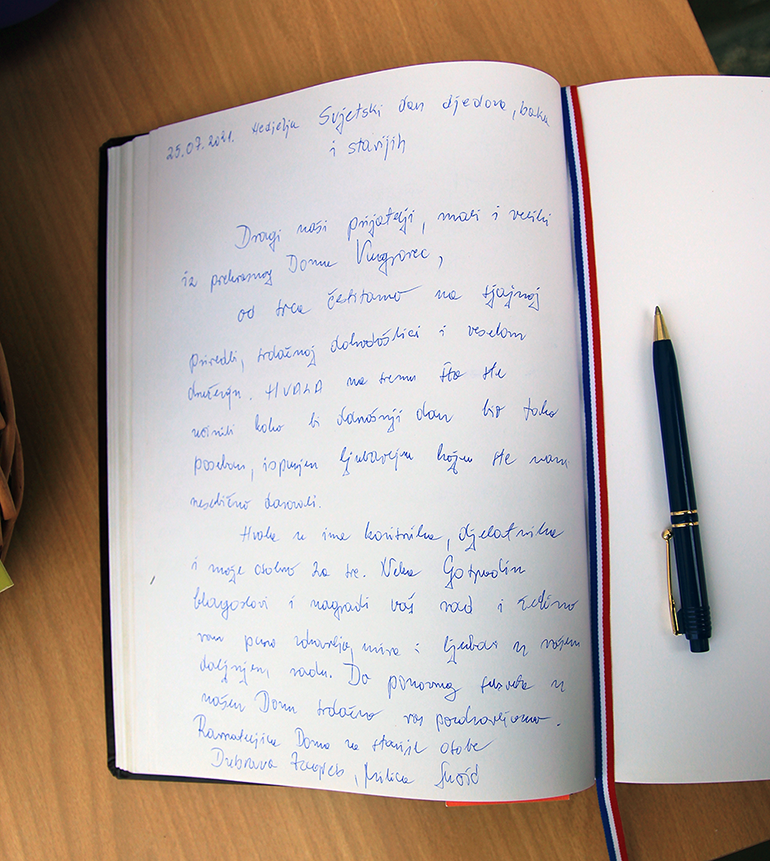 25.07.2021. Nedjelja Svjetski dan djedova, baka
i starijih
Dragi naši prijatelji, mali i veliki
iz prekrasnog Doma Vugrovec,
od srca čestitamo na sjajnoj
priredbi, srdačnoj dobrodošlici i veselom
druženju. HVALA na svemu što ste
učinili kako bi današnji dan bio tako
poseban, ispunjen ljubavlju kojom ste nam
nesebično darovali.
Hvala u ime korisnika, djelatnika
i moje osobno za sve. Neka Gospodin
blagoslovi i nagradi vaš rad i želimo
vam puno zdravlja, mira i ljubavi u vašem
daljnjem radu. Do ponovnog susreta u
našem Domu srdačno vas pozdravljamo.
Ravnateljica Doma za starije osobe
Dubrava Zagreb, Milica